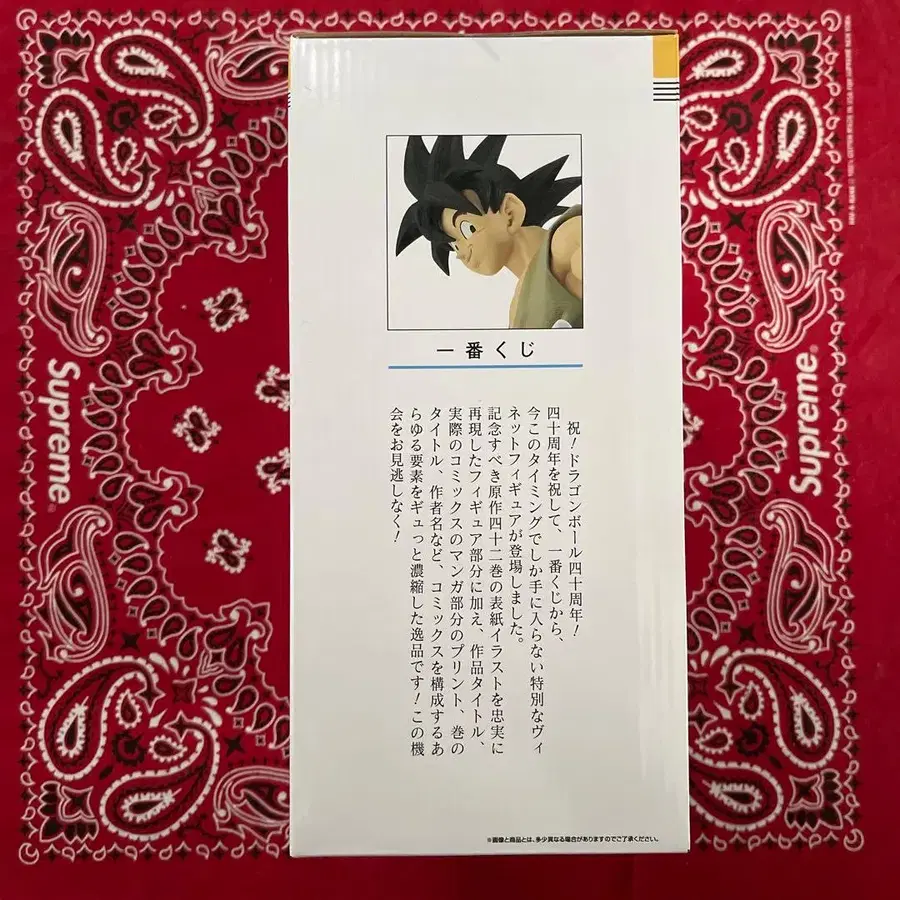 一番くじ
祝！ドラゴンボール四十周年！
四十周年を祝して、一番くじから、
今このタイミングでしか手に入らない特別なヴィ
ネットフィギュアが登場しました。
記念すべき原作四十二巻の表紙イラストを忠実に
再現したフィギュア部分に加え、作品タイトル、
実際のコミックスのマンガ部分のプリント、巻の
タイトル、作者名など、コミックスを構成するあ
らゆる要素をギュっと濃縮した逸品です！この機
会をお見逃しなく！
※画像と商品とは、多少異なる場合がありますのでご了承ください。
Supreme
Supreme